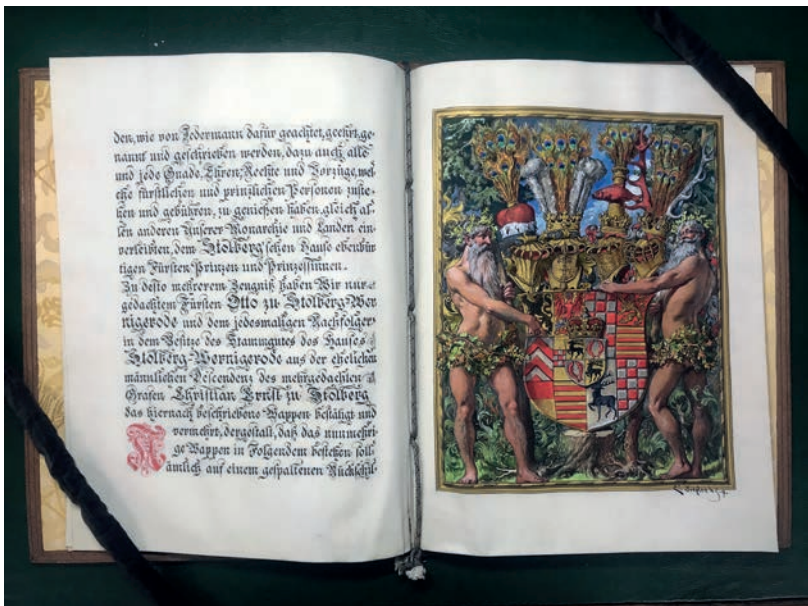 den, wie von Jedermann dafür geachtet, geehrt, ge-
nannt und geschrieben werden, dazu auch alle
und jede Gnade, Ehren, Rechte und Vorzüge, wel-
che fürstlichen und prinzlichen Personen zuste-
hen und gebühren, zu genießen haben, gleich al-
len anderen Unserer Monarchie und Landen ein-
verleibten, dem Stolberg'schen Hause ebenbür
tigen Fürsten, Prinzen und Prinzessinnen.
Zu desto mehrerem Zeugniß haben Wir nur-
gedachtem Fürsten Otto zu Stolberg-Wer
nigerode und dem jedesmaligen Nachfolger
in dem Besitze des Stammgutes des Hauses
Stolberg-Wernigerode aus der ehelichen
männlichen Descendenz des mehrgedachten
Grafen Christian Ernst zu Stolberg
das hiernach beschriebene Wappen bestätigt und
vermehrt, dergestalt, daß das nunmehri
ge Wappen in Folgendem bestehen soll:
Nämlich auf einem gespaltenen Rückschil-